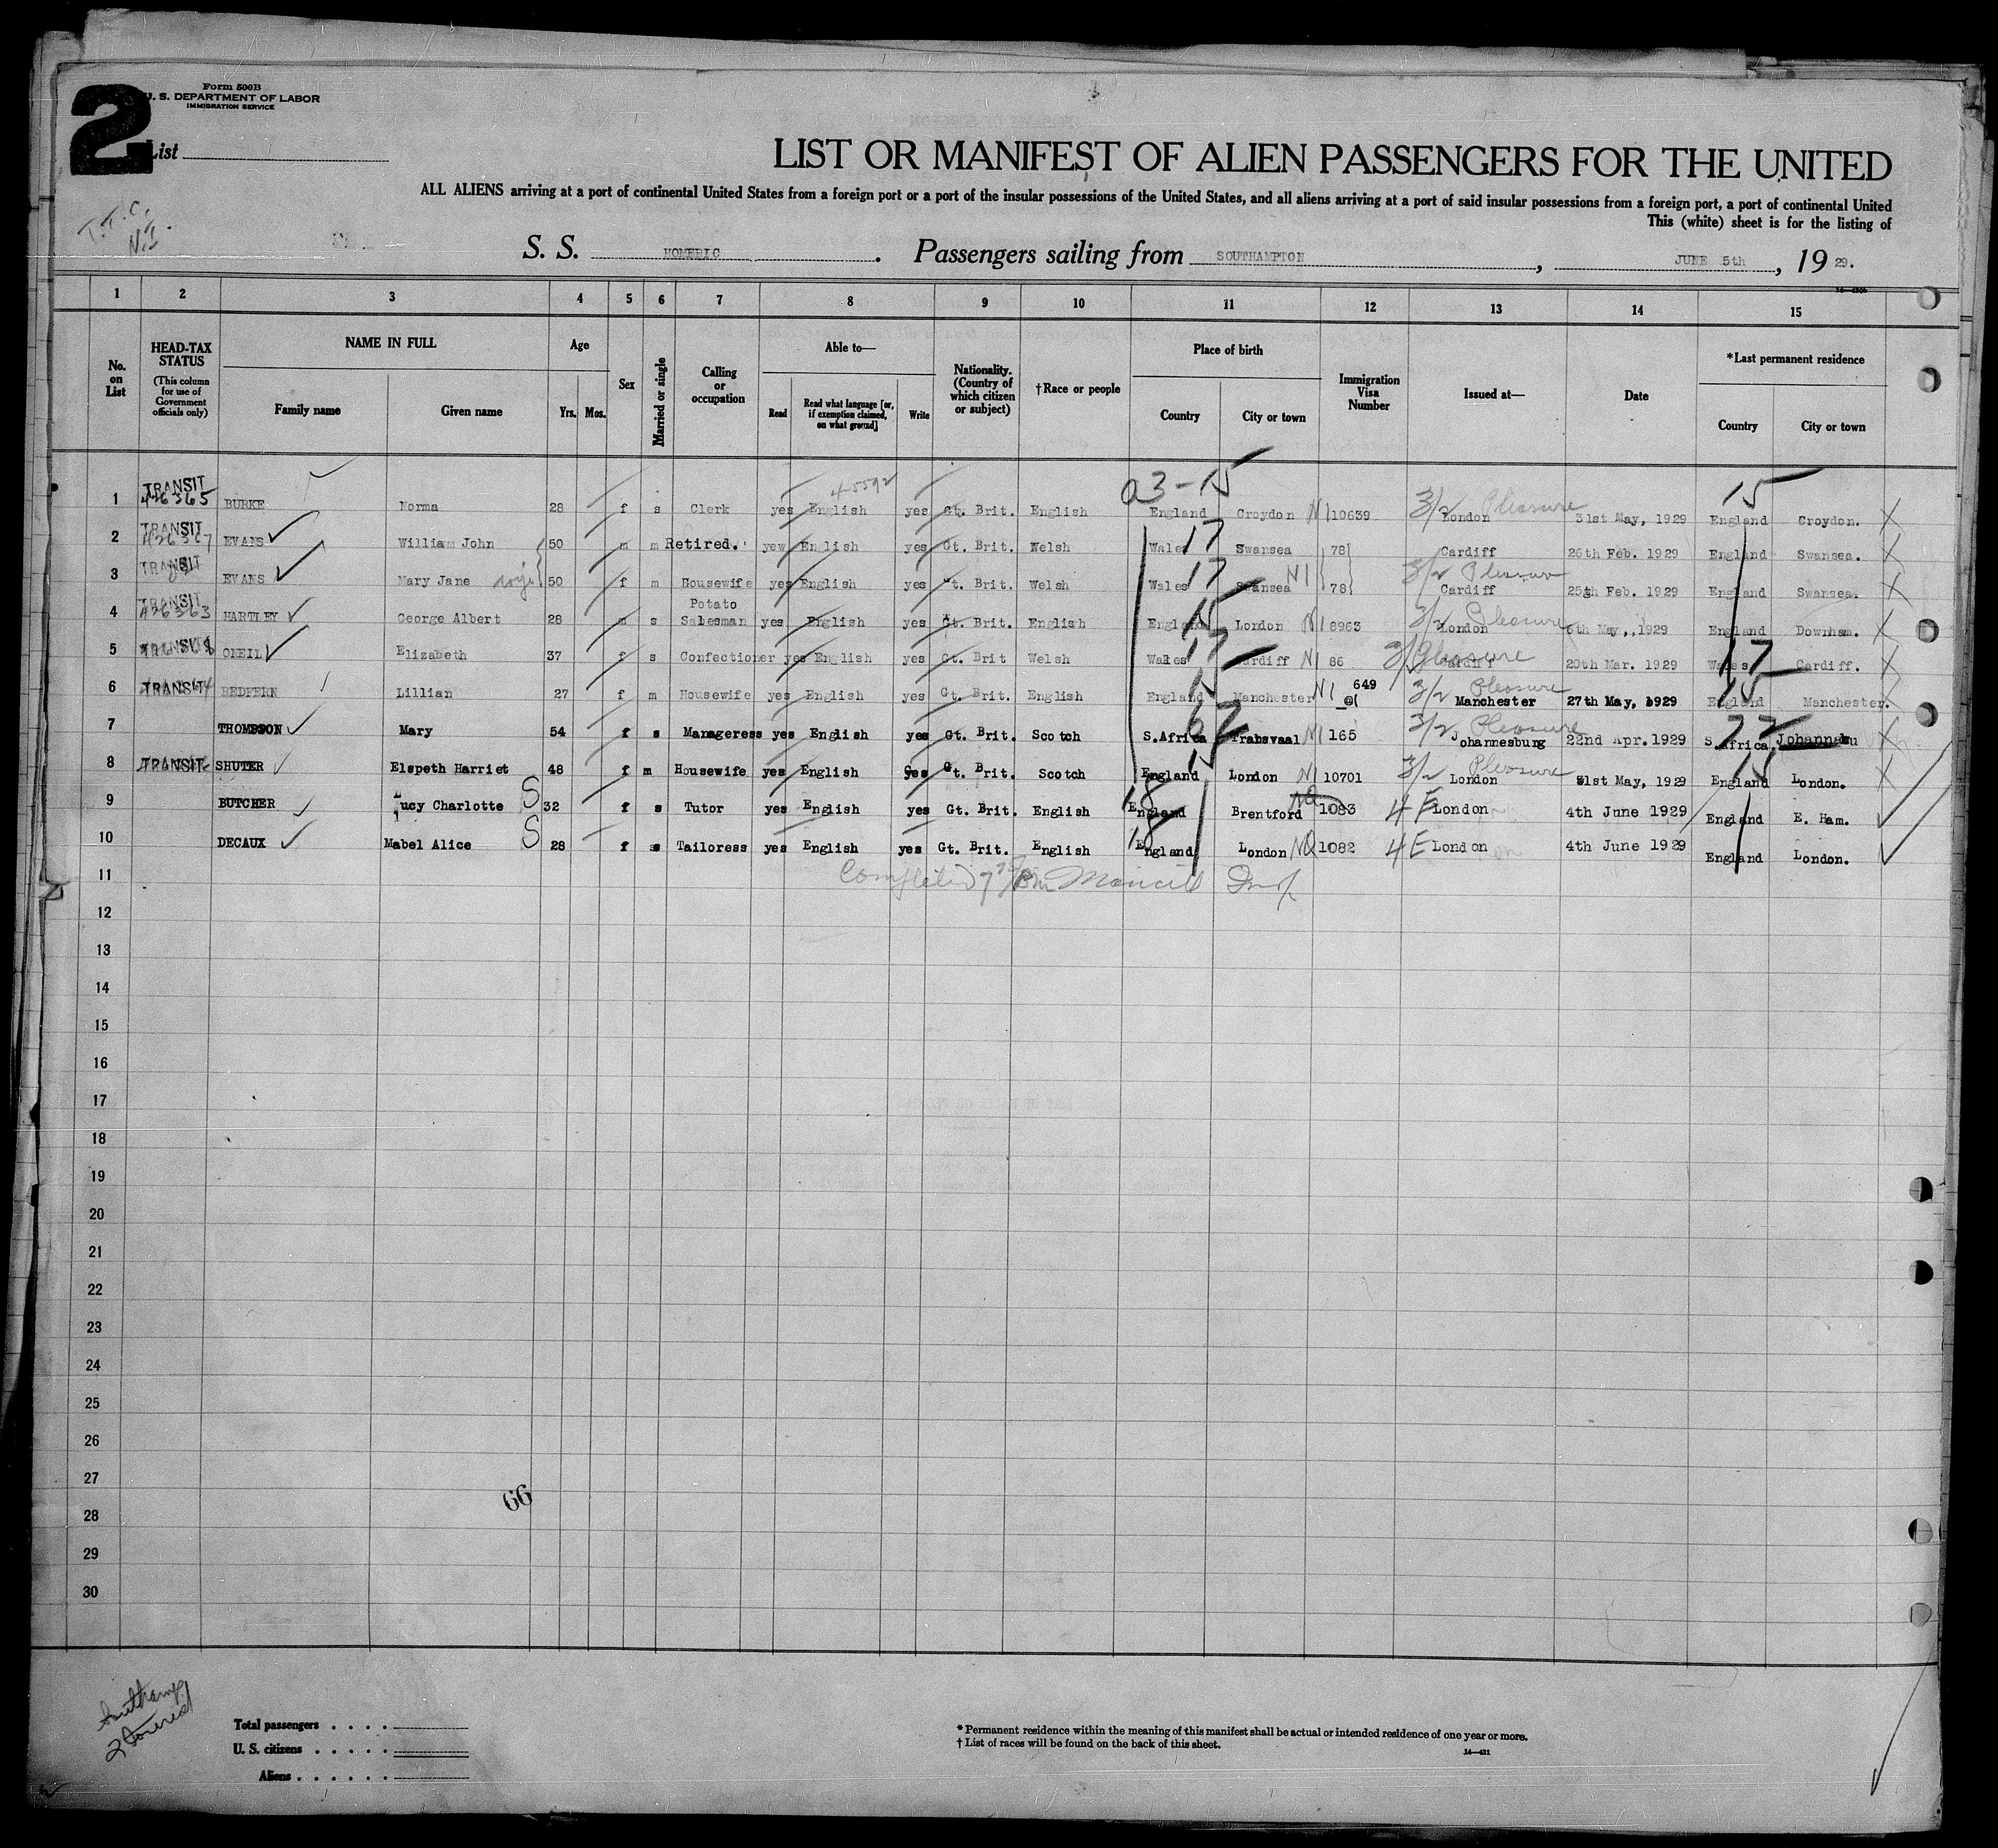 2
Form 500B
U. S. DEPARTMENT OF LABOR
IMMIGRATION SERVICE
List
LIST OR MANIFEST OF ALIEN PASSENGERS FOR THE UNITED
ALL ALIENS arriving at a port of continental United States from a foreign port or a port of the insular possessions of the United States, and all aliens arriving at a port of said insular possessions from a foreign port, a port of continental United
This (white) sheet is for the listing of
T.F.C.
N.I.
S. S. HOMERIC. Passengers sailing from SOUTHAMPTON, JUNE 5th, 19 29.
1 2 3 4 5 6 7 8 9 10 11 12 13 14 15
No. on List
HEAD-TAX STATUS
(This column for use of Government officials only)
NAME IN FULL
Family name Given name
Age
Yrs. Mos.
Sex
Married or single
Calling or occupation
Able to—
Read
Read what language [or, if exemption claimed, on what ground]
Write
Nationality. (Country of which citizen or subject)
†Race or people
Place of birth
Country City or town
Immigration Visa Number
Issued at—
Date
*Last permanent residence
Country City or town
a3-15 15
1 TRANSIT 426365 BURKE Norma 28 f s Clerk yes English 45592 yes Gt. Brit. English England Croydon N1 10639 3/2 Pleasure London 31st May, 1929 England Croydon. X
2 TRANSIT EVANS William John 50 m m Retired. yew English yes Gt. Brit. Welsh Wales 17 Swansea 78 Cardiff 26th Feb. 1929 England Swansea. X
3 TRANSIT EVANS Mary Jane wife 50 f m Housewife yes English yes Gt. Brit. Welsh Wales 17 Swansea N1 78 3/2 Pleasure Cardiff 25th Feb. 1929 England Swansea. X
4 TRANSIT 426363 HARTLEY George Albert 28 m s Potato Salesman yes English yes Gt. Brit. English England 15 London N1 8963 3/2 Pleasure London 6th May,,1929 England Downham. X
5 TRANSIT ONEIL Elizabeth 37 f s Confectioner yes English yes Gt. Brit Welsh Wales 17 Cardiff N1 86 3/2 Pleasure Cardiff 20th Mar. 1929 Wales 17 Cardiff. X
6 TRANSIT REDFERN Lillian 27 f m Housewife yes English yes Gt. Brit. English England 15 Manchester N1 649 3/2 Pleasure Manchester 27th May, 1929 England 15 Manchester. X
7 THOMPSON Mary 54 f s Manageress yes English yes Gt. Brit. Scotch S.Africa 67 Trabsvaal N1 165 3/2 Pleasure Johannesburg 22nd Apr.1929 S.Africa. 77 Johannabu X
8 TRANSIT SHUTER Elspeth Harriet 48 f m Housewife yes English yes Gt. Brit. Scotch England 15 London N1 10701 3/2 Pleasure London 31st May, 1929 England 15 London. X
9 BUTCHER Lucy Charlotte S 32 f s Tutor yes English yes Gt. Brit. English England 18 Brentford NQ 1083 4 E London 4th June 1929 England E. Ham.
10 DECAUX Mabel Alice S 28 f s Tailoress yes English yes Gt. Brit. English England 18 London NQ 1082 4 E London 4th June 1929 England London.
11 Completed
12
13
14
15
16
17
18
19
20
21
22
23
24
25
26
27
66
28
29
30
Total passengers
U. S. citizens
Aliens
* Permanent residence within the meaning of this manifest shall be actual or intended residence of one year or more.
† List of races will be found on the back of this sheet.
14—431